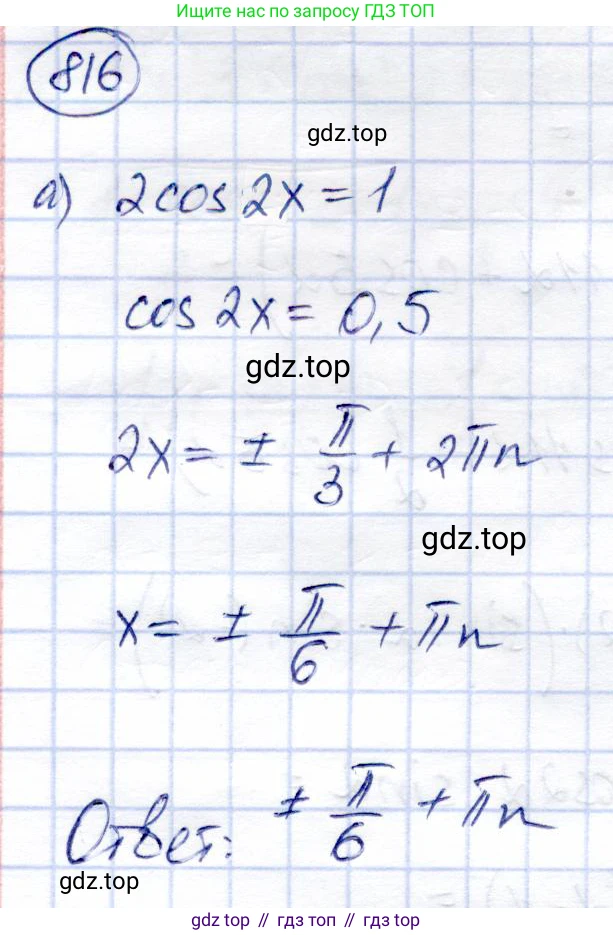 Ищите нас по запросу ГДЗ ТОП
816
gdz.top
а) 2cos 2x = 1
cos 2x = 0,5
gdz.top
2x = ± π/3 + 2πn
gdz.top
x = ± π/6 + πn
Ответ: ± π/6 + πn
gdz.top
gdz top // гдз топ // гдз.топ